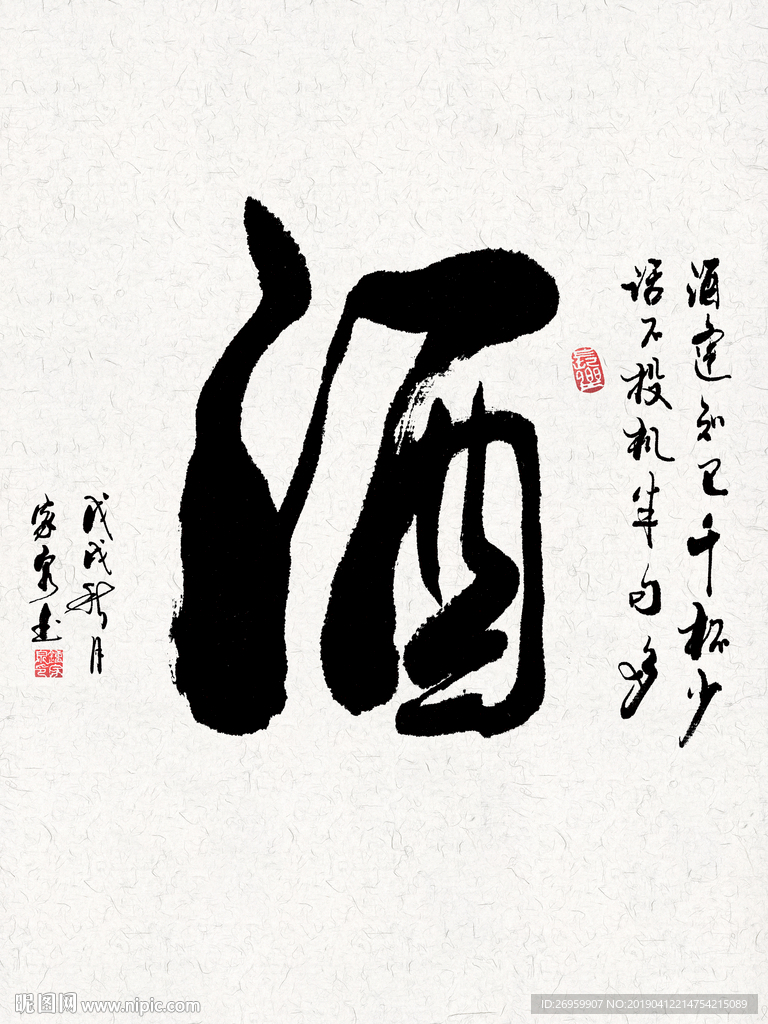 酒逢知己千杯少
话不投机半句多
酒
戊戌秋月
家泉书
昵图网 www.nipic.com
ID:26959907 NO:20190412214754215089